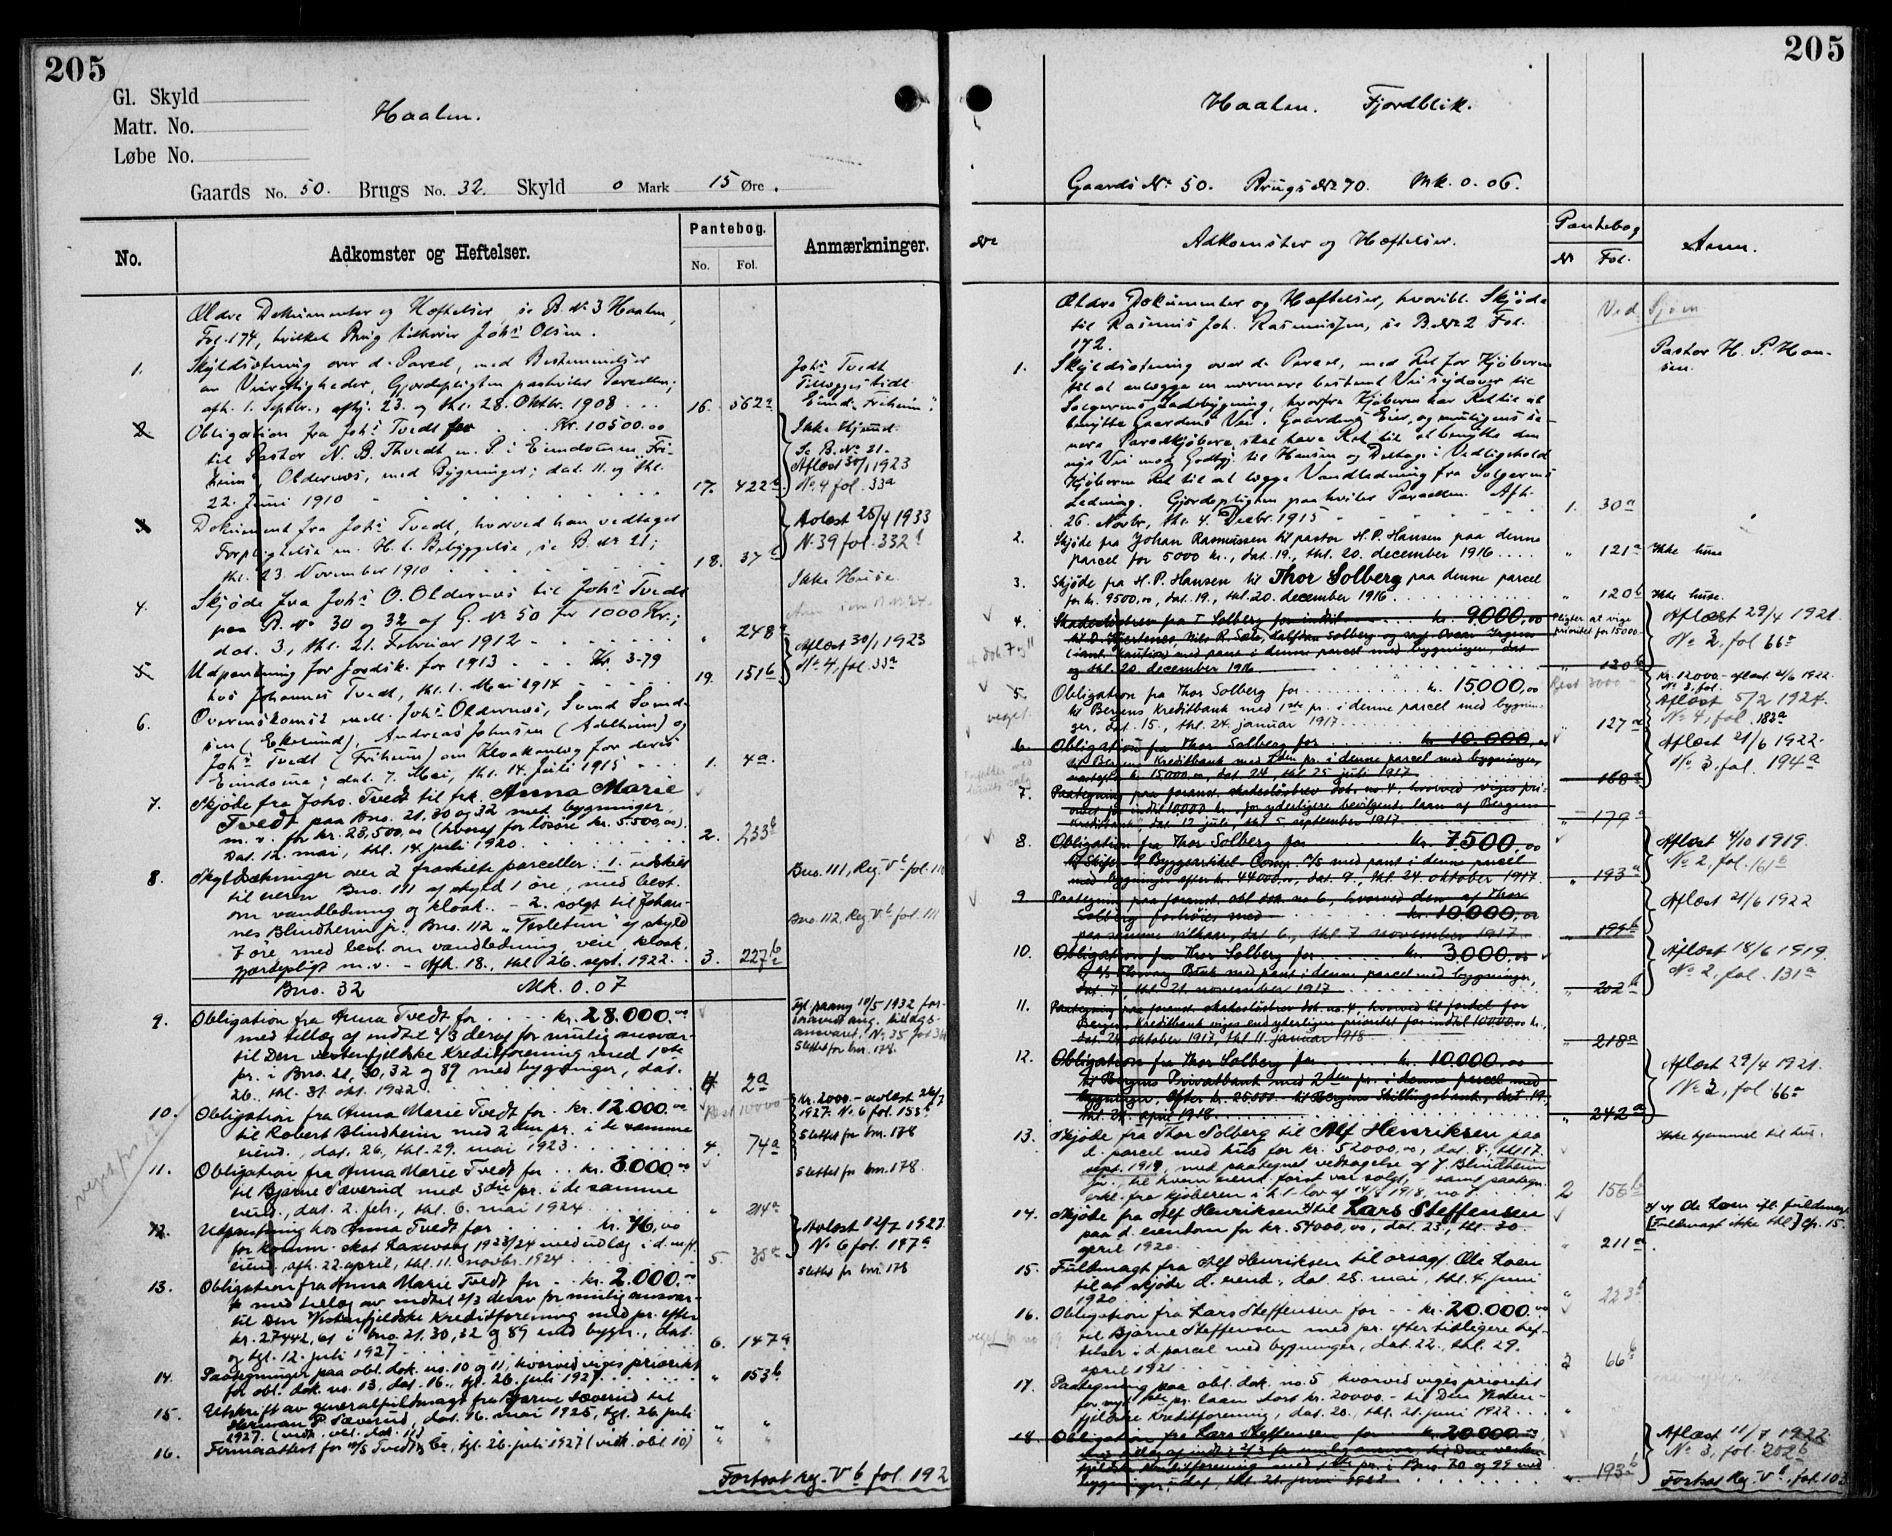 205
Gl. Skyld
Matr. No.
Løbe No.
Haalen.
Gaards No. 50. Brugs No. 32. Skyld 0 Mark 15 Øre.
No. Adkomster og Heftelser. Pantebog. No. Fol. Anmærkninger.
Ældre Dokumenter og Hæftelser, se B. No 3 Haalen,
Fol. 174, hvilket Brug tilhører Johs Olsen.
1. Skyldsætning over d. Parcel, med Bestemmelser
om Veirettigheder, Gjerdepligten paahviler Parcellen;
afh. 1. Septbr., afhj. 23. og thl. 28. Oktbr. 1908 . . . 16. 562a
Johs Tvedt
Tillægges tidl.
Eiend. "Friheim".
2. Obligation fra Johs Tvedt for . . Kr. 10500.00
til Pastor N. B. Thvedt m. P. i Eiendommen "Fri-
heim", Oldernæs, med Bygninger; dat. 11. og thl.
22. Juni 1910 17. 422b
Ikke Hjemmel.
Se B. No 21.
Aflæst 30/1 1923
No 4 fol. 33a
3. Dokument fra Johs Tvedt, hvorved han vedtager
Forpligtelse m. H. t. Bebyggelse, se B. No 21;
thl. 23. November 1910 18. 37b
Avlæst 25/4 1933
N. 39 fol. 332b
4. Skjøde fra Johs O. Oldernes til Johs Tvedt
paa B. No 30 og 32 af G. No 50 for 1000 Kr.;
dat. 3, thl. 21. Februar 1912 " 248a
Ikke Huse
5. Udpantning for Jordsk. for 1913 . . . Kr. 3-79
hos Johannes Tvedt, thl. 1. Mai 1914 19. 151b
Aflæst 30/1 1923
No 4, fol. 33a
6. Overenskomst mell. Johs Oldernes, Svend Svend-
sen (Ekelund), Andreas Johnsen (Adelheim) og
Johs Tvedt (Friheim) om Kloakanlæg for deres
Eiendomme; dat. 7. Mai, thl. 14. Juli 1915 1. 4a.
7. Skjøde fra Johs. Tvedt til frk. Anna Marie
Tvedt paa Bno. 21, 30 og 32 med bygninger
m. v. for kr. 23,500,00 (hvoraf for løsøre kr. 5.500,00).
Dat. 12. mai, thl. 14. juli 1920. 2. 233b
8. Skyldsætninger over 2 fraskilte parceller: 1. udskilt
til veien Bno. 111 af skyld 1 øre, med best.
om vandledning og kloak. - 2. solgt til Johan-
nes Blindheim jr. Bno. 112 "Tesletun" af skyld
7 øre, med best. om vandledning, veie, kloak,
gjærdepligt m. v. - Afh. 18., thl. 26. sept. 1922. 3. 227b
Bno. 111, Reg. Vb fol. 110
Bno. 112, Reg. Vb fol. 111
Bno. 32 Mk. 0.07
9. Obligation fra Anna Tvedt for . . . . kr. 28.000.00
med tillæg af indtil 2/3 deraf for mulig ansvar
til Den vestenfjeldske Kreditforening med 1ste
pr. i Bno. 21, 30, 32 og 89 med bygninger, dat.
26. thl. 31. okt. 1922. 4 2a
Tgl. paateg 10/5 1932
No 35 fol.
Slettet for bnr. 178.
10. Obligation fra Anna Marie Tvedt for . kr. 12.000.00
til Robert Blindheim med 2den pr. i de samme
eiend., dat. 26, thl. 29. mai 1923. 4. 74a
Rest 10000
kr. 2000.- avlæst 26/7
1927. No 6 fol. 153b
Slettet for bnr. 178
11. Obligation fra Anna Marie Tvedt for . . kr. 3.000.00
til Bjarne Sæverud med 3die pr. i de samme
eiend., dat. 2. febr., thl. 6. mai 1924 " 214a
Slettet for bnr. 178.
12. Utpantning hos Anna Tvedt for . . . kr. 76,00
for komm. skat Laxevaag 1923/24 med udlæg i d. m. fl.
eiend., afh. 22. april, thl. 11. novbr. 1924 5. 35a
Avlæst 12/7 1927
No 6 fol. 147a
13. Obligation fra Anna Marie Tvedt for . . kr. 2.000.-
med tillæg av indtil 2/3 derav for mulig ansvar
til Den Vestenfjeldske Kreditforening med pr. efter
kr. 27442,61 i bno. 21, 30, 32 og 89 med bygn., dat.
og tgl. 12. juli 1927 6. 147a
Slettet for bnr. 178
14. Paategninger paa obl. dok. no. 10 og 11, hvorved viges prioritet
for obl. dok. no. 13, dat. 16., tgl. 26. juli 1927. " 153b
15. Utskrift av generalfuldmagt fra Bjarne Sæverud til
Herman P. Sæverud, dat. 16. mai 1925, tgl. 26. juli
1927. (vedk. obl. dok. 11) " "
16. Firmaattest for A/S Tvedt & Co, tgl. 26. juli 1927 (vedk. obl. 10) " "
Fortsat reg. Vb fol. 192
205
Haalen. Fjordblik.
Gaards No 50. Brugs No 70. Mk. 0.06.
No Adkomster og Hæftelser. Pantebog No Fol. Anm.
Ældre Dokumenter og Hæftelser, hvoribl. Skjøde
til Rasmus Joh. Rasmussen, se B. No 2 Fol.
172.
Ved Sjøen
1. Skyldsætning over d. Parcel, med Ret for Kjøberen
til at anlægge en nærmere bestemt Vei sydover til
Sælgerens Ladebygning, hvorfra Kjøberen har Ret til at
benytte Gaardens Vei. Gaardens Eier, og muligens se-
nere Parcelkjøbere skal have Ret til at benytte den
nye Vei mod Godtgj. til Hansen og Deltage i Vedligehold
Kjøberen Ret til at lægge Vandledning fra Sælgerens
Ledning. Gjerdepligten paahviler Parcellen. Afh.
26. Novbr, thl. 4. Decbr. 1915 1. 30a
Pastor H. P. Han-
sen.
2. Skjøde fra Johan Rasmussen til pastor H. P. Hansen paa denne
parcel for 5000 kr., dat. 19., thl. 20. december 1916 . . . . " 121a Ikke huse
3. Skjøde fra H. P. Hansen til Thor Solberg paa denne parcel
for kr. 9500,00, dat. 19., thl. 20. december 1916 . . . . " 120b Ikke huse.
4. Skadesløsbrev fra T. Solberg for indtil . . . kr. 9000,00
og thl. 20. december 1916 " 120b
Pligter at vige
prioritet for 15000
Aflæst 29/4 1921.
No 2, fol 66a
5. Obligation fra Thor Solberg for . . . . . kr. 15000,00
til Bergens Kreditbank med 1ste pr. i denne parcel med bygnin-
ger, dat. 15., thl. 24. januar 1917 " 127a
Rest 3000
kr. 12000.- aflæst 21/6 1922.
No 3, fol.
Aflæst 5/2 1924.
No 4, fol. 183a
veget
6. Obligation fra Thor Solberg for . . . kr. 10.000,00
til Bergens Kreditbank med 2den pr. i denne parcel med bygninger,
næstefter kr. 15000,00, dat. 24., thl. 25. juli 1917 " 168a
Aflæst 21/6 1922.
No 3, fol. 194a
7. Paategning paa foranst. skadesløsbrev dok. no. 4, hvorved viges pri-
oritet for indtil 10000 kr. for yderligere bevilgent laan af Bergens
Kreditbank, dat. 12 juli, thl. 5. september 1917 " 179a
8. Obligation fra Thor Solberg for . . . kr. 7500,00
til Skifer- & Byggeartikel-Comp. A/S med pant i denne parcel
med bygninger efter kr. 44000,00, dat. 9., thl. 24. oktober 1917 " 193a
Aflæst 4/10 1919.
No 2, fol. 161a
9. Paategning paa foranst. obl. dok. no. 6, hvorved den af Thor
Solberg forhøies med . . . kr. 10000,00
paa samme vilkaar, dat. 6., thl. 7. november 1917. " 199b
Aflæst 21/6 1922
10. Obligation fra Thor Solberg for . . . kr. 3000,00
til A/S Florvaag Bruk med pant i denne parcel med bygninger,
dat. 7., thl. 21. november 1917 " 202b
Aflæst 18/6 1919.
No 2, fol. 131a
11. Paategning paa foranst. skadesløsbrev dok. no. 4, hvorved til fordel for
Bergens Kreditbank viges end yderligere prioritet for indtil 10000,00 kr.,
dat. 24. oktober 1917, thl. 11. januar 1918 " 218a
12. Obligation fra Thor Solberg for . . . kr. 10.000,00
til Bergens Privatbank med 2den pr. i denne parcel med
bygninger, efter kr. 25000.- til Bergens Skillingsbank, dat. 19.,
thl. 24. april 1918 " 242a
Aflæst 29/4 1921.
No 2, fol 66a
13. Skjøde fra Thor Solberg til Alf Henriksen paa
d. parcel med hus for kr. 52000,00, dat. 8., thl. 17.
sept. 1919, med paategnet vedtagelse af J. Blindheim
jr. til hvem eiend. først var solgt, - samt paategn.
erkl. fra kjøberen i h. t. lov af 14/8 1918, no 8. 2 156b
Ikke hjemmel til hus.
14. Skjøde fra Alf Henriksen til Lars Steffensen
paa d. eiendom for kr. 54000,00, dat. 23., thl. 30.
april 1920 " 211a
v/ Ole Loen ifl. fuldmagt
[Fuldmagt ikke thl.] cfr. 15.
15. Fuldmagt fra Alf Henriksen til orsagf. Ole Loen
til at skjøde d. eiend., dat. 28. mai, thl. 4. juni
1920 " 223b
16. Obligation fra Lars Steffensen for . . kr. 20.000.00
til Bjarne Steffensen med pr. efter tidligere hef-
telser i d. parcel med bygninger, dat. 22. thl. 29.
april 1921 3 66b
17. Paategning paa obl. dok. no. 5, hvorved viges prioritet
for nyt 1ste pr. laan stort kr. 20000.- til Den Vesten-
fjeldske Kreditforening, dat. 20., thl. 21. juni 1922 . . . "
18. Obligation fra Lars Steffensen for . . kr. 20000.00
med tillæg af indtil 2/3 for mulig ansvar, til Den vesten-
fjeldske Kreditforening med 1ste pr. i Bno 70 og 99 med
bygninger, dat., thl. 21. juni 1922 " 193b
Aflæst 11/7 1922
No 3, fol. 202b
Fortsat Reg. Vb, fol. 103